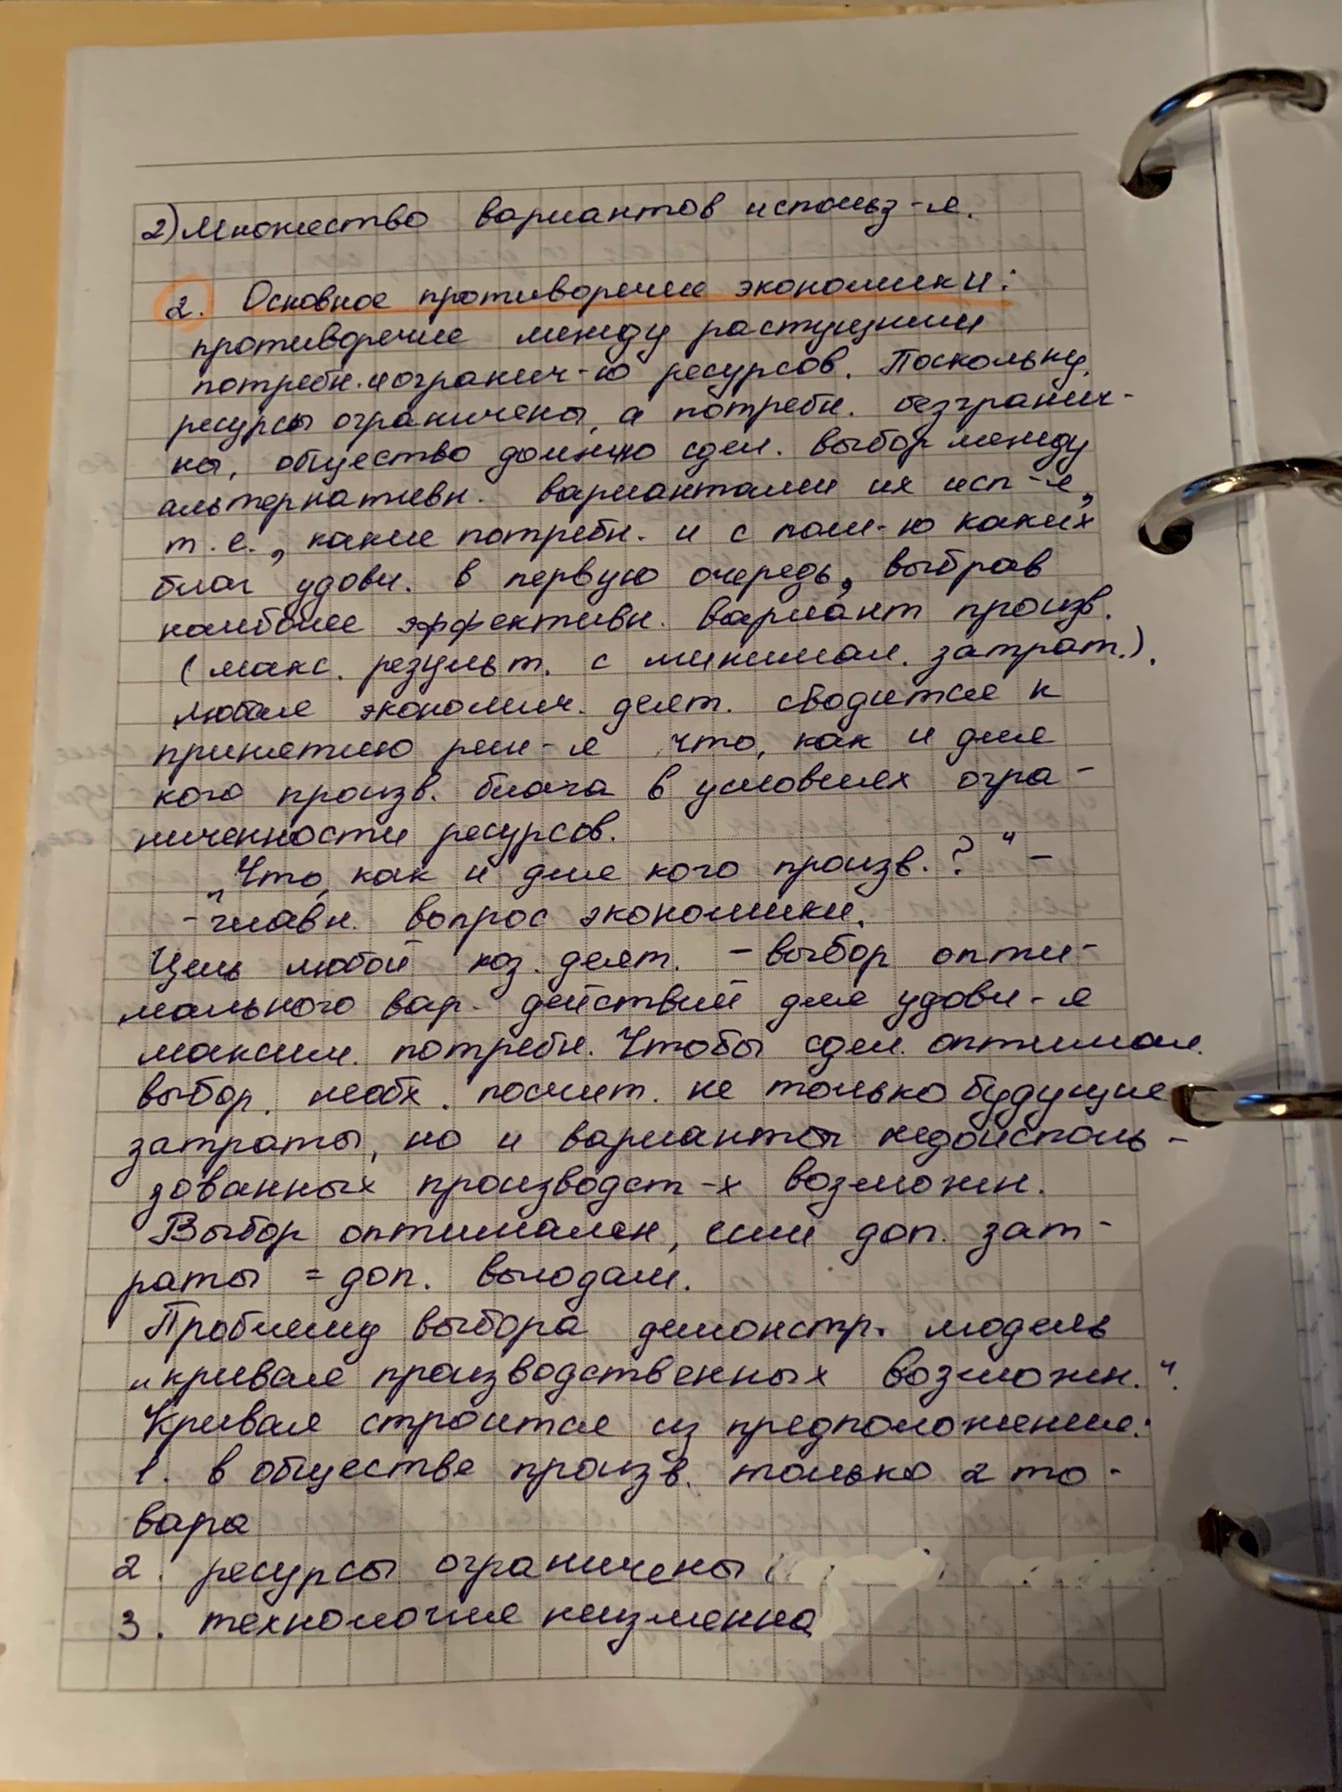 2) Множество вариантов использ-я.
2. Основное противоречие экономики:
противоречие между растущими
потребн. и огранич-ю ресурсов. Поскольку
ресурсы ограничены, а потребн. безгранич-
ны, общество должно сдел. выбор между
альтернативн. вариантами их исп-я,
т.е., какие потребн. и с пом-ю каких
благ удовл. в первую очередь, выбрав
наиболее эффективн. вариант произв.
(макс. результ. с минимал. затрат.).
Любая экономич. деят. сводится к
принятию реш-я что, как и для
кого произв. блага в условиях огра-
ниченности ресурсов.
„Что, как и для кого произв.?" -
- главн. вопрос экономики.
Цель любой хоз. деят. - выбор опти-
мального вар. действий для удовл-я
максим. потребн. Чтобы сдел. оптимал.
выбор, необх. посчит. не только будущие
затраты, но и варианты недоисполь-
зованных производст-х возможн.
Выбор оптимален, если доп. зат-
раты = доп. выгодам.
Проблему выбора демонстр. модель
„кривая производственных возможн.".
Кривая строится из предположения:
1. в обществе произв. только 2 то-
вара
2. ресурсы ограничены
3. технология неизменна